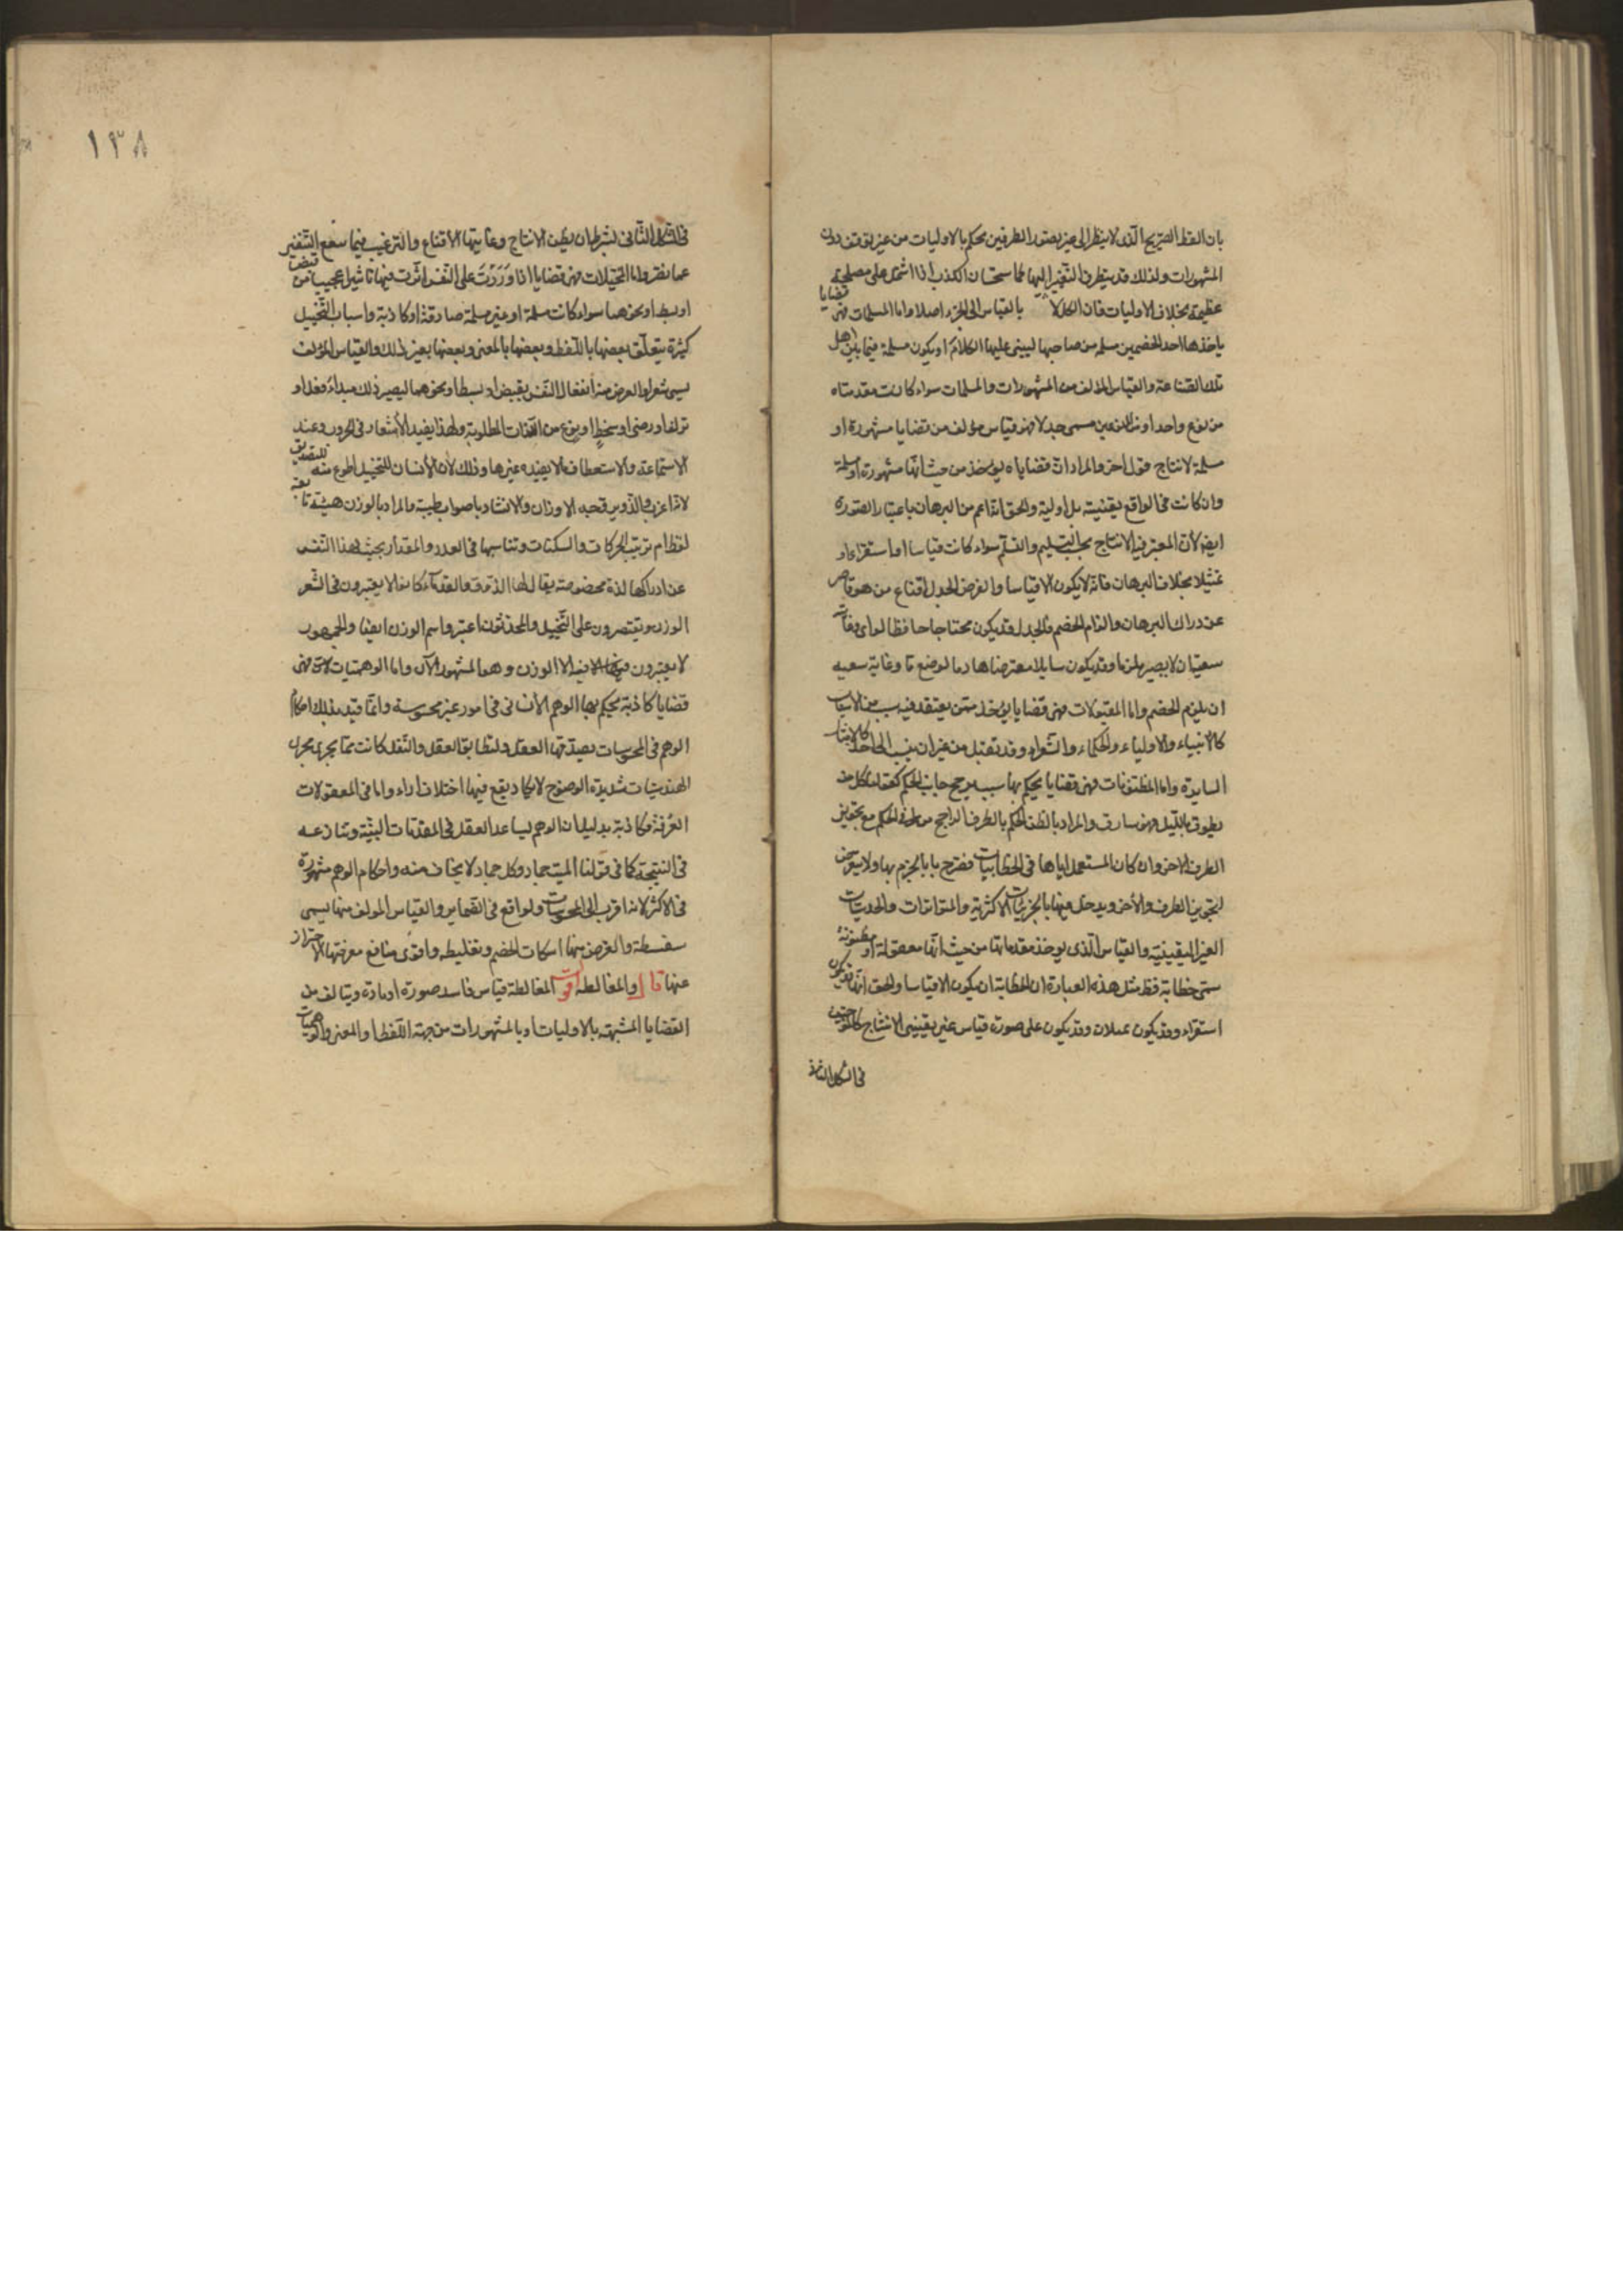 بان العقل الصريح الذى لا ينظر الى غير تصور الطرفين يحكم بالاوليات من غير توقف دون
المشهورات ولذلك قد يتطرق التغير اليها كما ستحسان الكذب اذا اشتمل على مصلحة
عظيمة بخلاف الاوليات فان الكل لا بالقياس الى الجزء اصلا واما المسلمات فهى قضايا
ياخذها احد الخصمين مسلمة من صاحبها ليبنى عليها الكلام او يكون مسلمة فيما بين اهل
تلك الصناعة والقياس المؤلف من المشهورات والمسلمات سواء كانت مقدمتاه
من نوع واحد او من النوعين سمى جدلا فهو قياس مؤلف من قضايا مشهورة او
مسلمة لانتاج قول اخر والمراد ان قضاياه يؤخذ من حيث انها مشهورة او مسلمة
وان كانت فى الواقع يقينية بل اولية والحق انه اعم من البرهان باعتبار الصورة
ايضا لان المعتبر فيه الانتاج بحسب التسليم والتسلم سواء كانت قياسا او استقراء او
تمثيلا بخلاف البرهان فانه لا يكون الا قياسا والغرض الجدل اقناع من هو قاصر
عن دراك البرهان والزام الخصم فالجدل قد يكون محتاجا حافظا لراى وغاية
سعيه ان لا يصير ملزما وقد يكون سايلا معترضا هادما لوضع ما وغاية سعيه
ان يلزم الخصم واما المقبولات فهى قضايا يؤخذ ممن يعتقد فيه سبب من الاسباب
كالانبياء والاولياء والحكماء والشعراء وقد تقبل من غير ان ينسب الى احد كالامثال
السايرة واما المظنونات فهى قضايا يحكم بها بسبب يرجح جانب الحكم كقولنا كل من
يطوف بالليل فهو سارق والمراد بالظن الحكم بالطرف الراجح من طرفى الحكم مع تجويز
الطرف الاخر وان كان المستعمل اياها فى الخطابيات فصرح بابا لجزم بها ولا يتعرض
لتجويز الطرف الاخر ويدخل فيها بالتجربيات الاكثرية والمتواترات والحدسيات
الغير اليقينية والقياس الذى يوخذ مقدماتها من حيث انها مقبولة او مظنونة
سمى خطابة فظ مثل هذه العبارة ان الخطابة ان يكون الا قياسا والحق انها قد يكون
استقراء وقد يكون تمثيلا وقد يكون على صورة قياس غير يقينى الانتاج كالموجبتين
فى الشكل الثانى
١٣٨
فى الشكل الثانى بشرط ان يظن الانتاج وغايتها الاقناع والترغيب فيما ينفع التنفير
عما يضر واما المخيلات فهى قضايا اذا وَرَدَتْ على النفس اثرت فيها تاثيرا عجيبا من قبض
او بسط او نحوهما سواء كانت مسلمة او غير مسلمة صادقة او كاذبة واسباب التخييل
كثيرة يتعلق بعضها باللفظ وبعضها بالمعنى وبعضها بغير ذلك والقياس المؤلف
يسمى شعرا والغرض منه انفعال النفس بقبض او بسط او نحوهما ليصير ذلك مبداء فعل او
ترك او رضى او سخط او نوع من اللذات المطلوبة ولهذا يفيد الاشعار فى الحروب وعند
الاستماعة والاستعطاف ما لا يفيده غيرها وذلك لان الانسان للتخييل اطوع منه للتصديق
لانه اعرب والذ ويروجه الاوزان والانشاد باصوات طيبة والمراد بالوزن هيئة تابعة
لنظام ترتيب الحركات والسكنات وتناسبها فى العدد والمقدار بحيث يهذا النفس
عن ادراكها لذة مخصوصة يقال لها الذوق والقدماء كانوا لا يعتبرون فى الشعر
الوزن ويقتصرون على التخييل والمحدثون اعتبروا سم الوزن ايضا والجمهور
لا يعتبرون فيه الا الوزن وهو المشهور الآن واما الوهميات فهى
قضايا كاذبة يحكم بها الوهم الانسانى فى امور غير محسوسة وانما قيد بذلك احكام
الوهم فى المحسوسات يصدقها العقل ولتطابق العقل والنقل كانت مما يجرى مجرى
الهندسيات شديدة الوضوح لا يكاد يقع فيها اختلاف اراء واما فى المعقولات
الصرفة فكاذبة بدليل ان الوهم يساعد العقل فى المقدمات البينة وينازعه
فى النتيجة كما فى قولنا الميت جماد وكل جماد لا يخاف منه واحكام الوهم مشهورة
فى الاكثر لانه اقرب الى المحسوسات واوقع فى الضماير والقياس المولف منها يسمى
سفسطة والغرض منها اسكات الخصم وتغليطه واقوى منافع معرفتها الاحتراز
عنها قال والمغالطة اقول المغالطة قياس فاسد صورة او مادة ويتالف من
القضايا المشبهة بالاوليات او بالمشهورات من جهة اللفظ او المعنى والوهميات